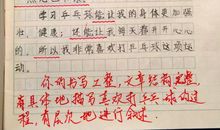 学习乒乓球能让我的身体更加强
壮、健康；还能让我每天都开开心心
的。所以我非常喜欢打乒乓球这项运
动。
你的书写工整，文章结构完整，
能具体地描写喜欢打乒乓球的过
程，有层次地进行叙述。